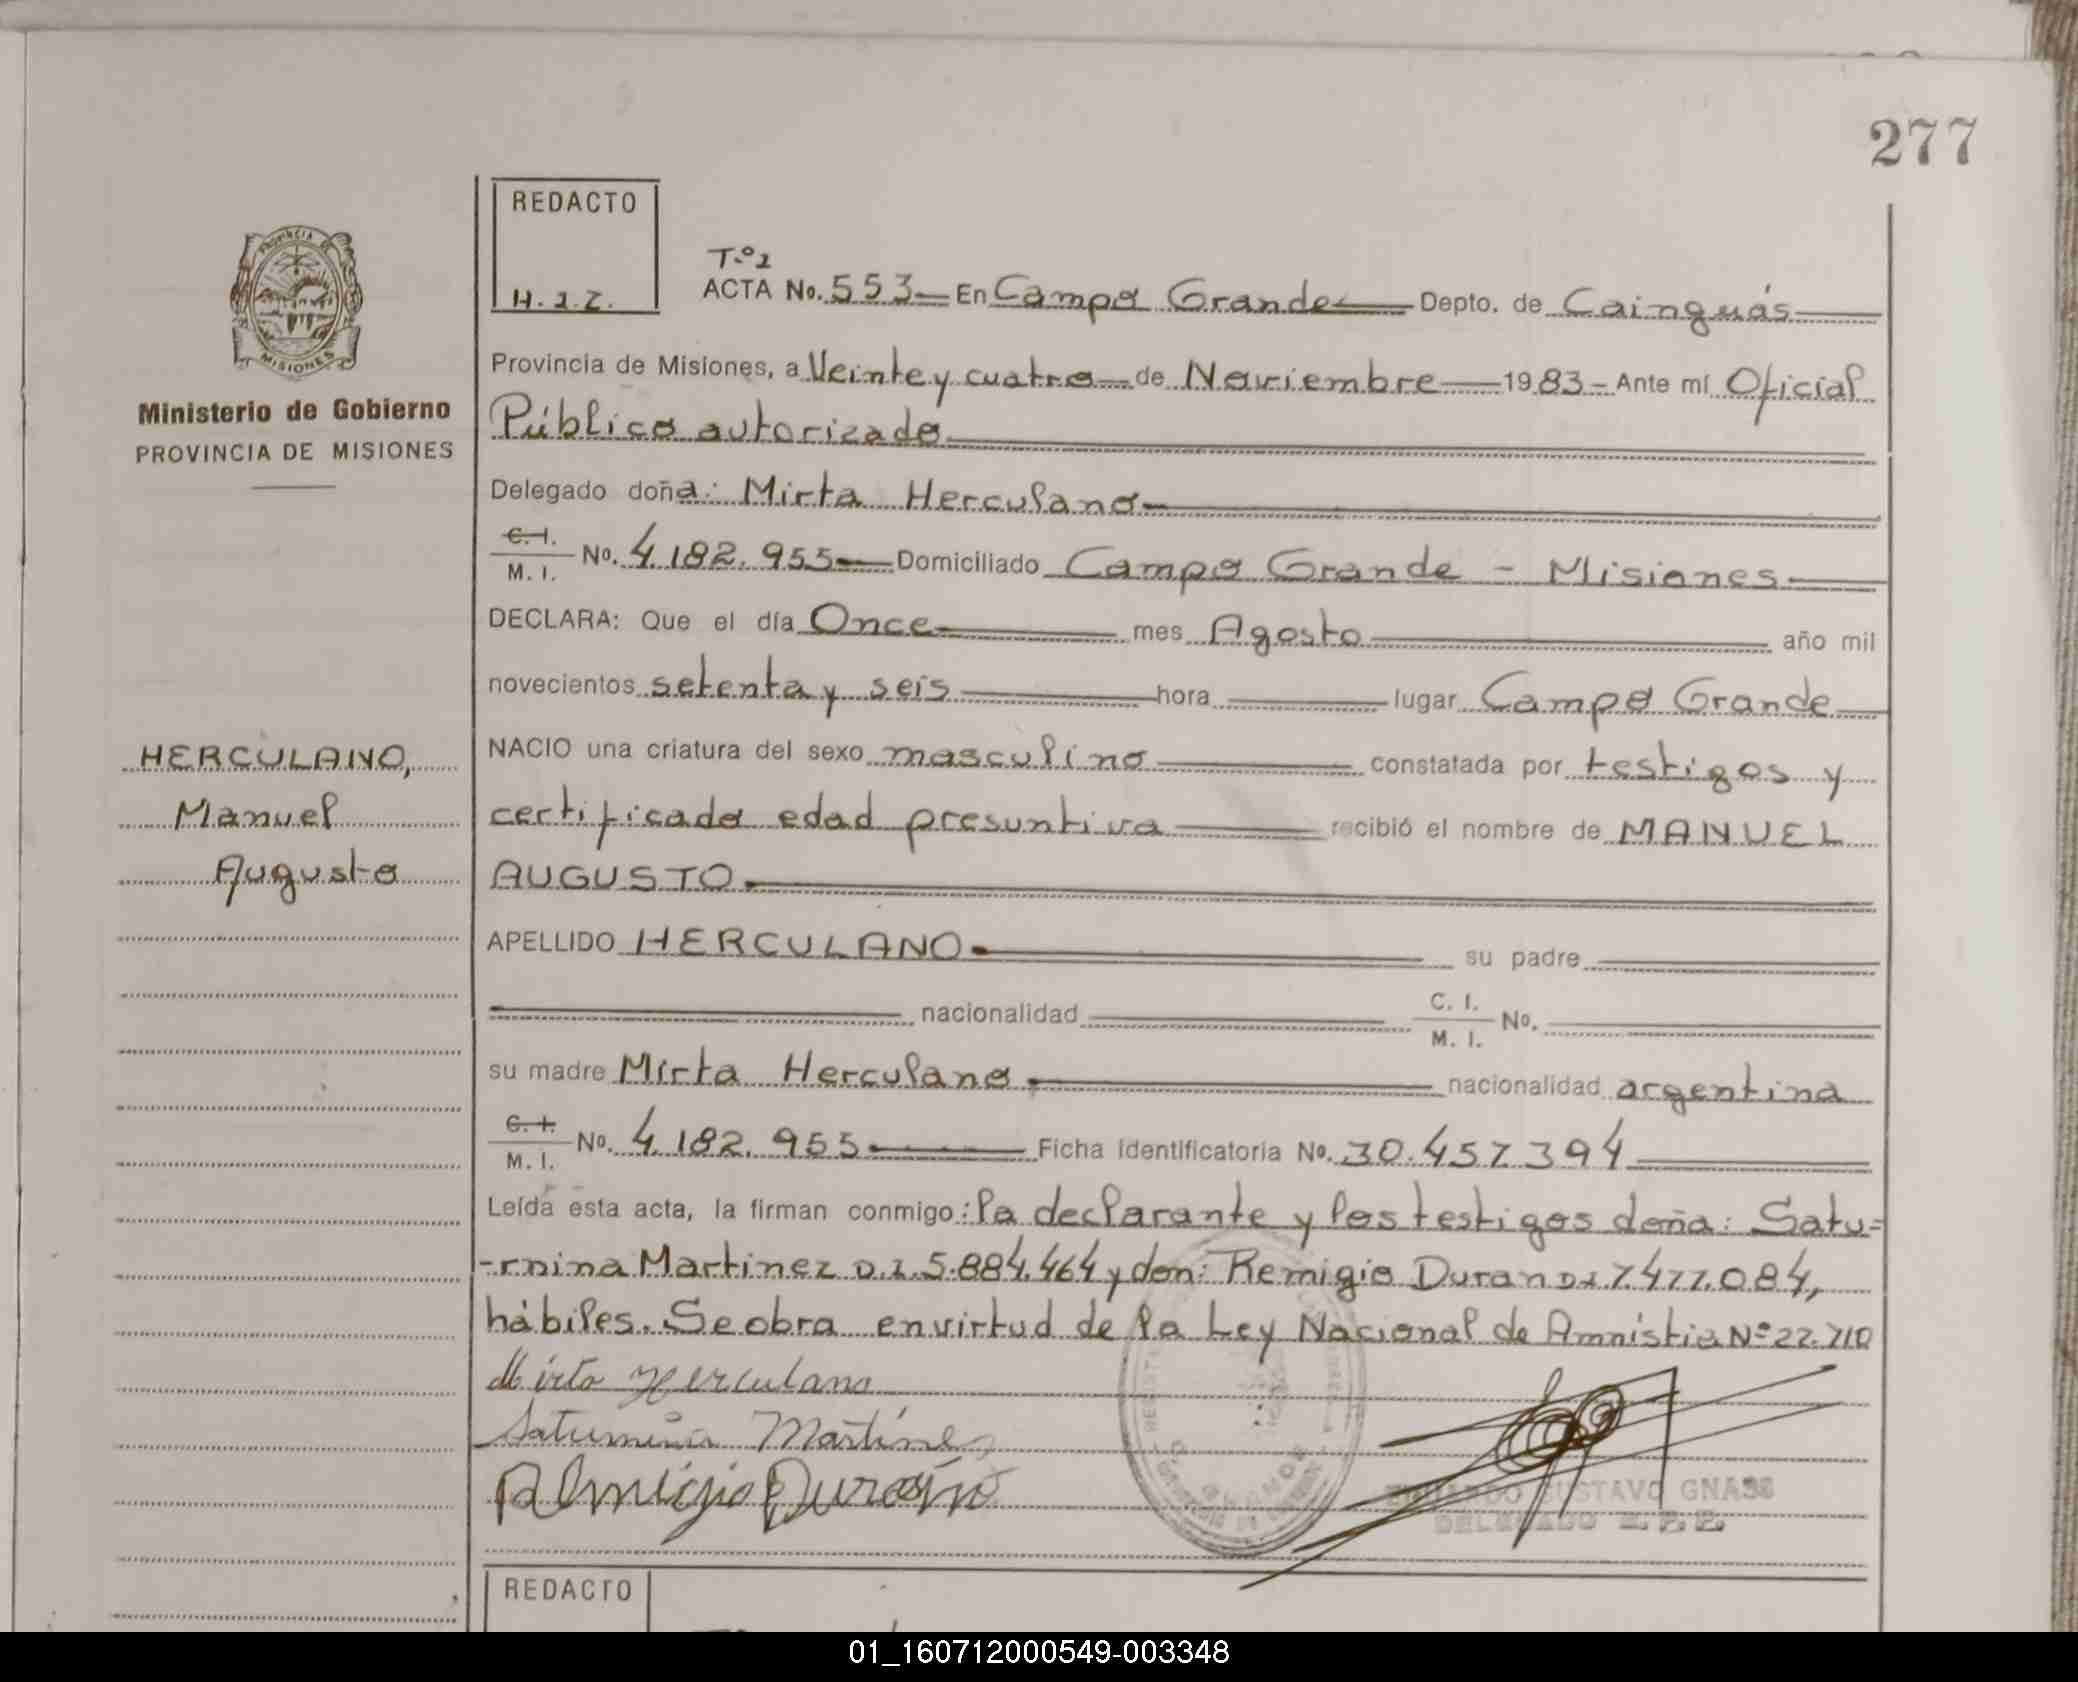 277
REDACTO
H.I.Z.
Tº2
ACTA No. 553 En Campo Grande Depto. de Cainguás
PROVINCIA DE
MISIONES
Ministerio de Gobierno
PROVINCIA DE MISIONES
Provincia de Misiones, a Veinte y cuatro de Noviembre 1983 - Ante mí Oficial
Público autorizado
Delegado doña: Mirta Herculano
C. I.
M. I. No. 4.182.955 Domiciliado Campo Grande - Misiones
DECLARA: Que el día Once mes Agosto año mil
novecientos setenta y seis hora lugar Campo Grande
HERCULANO,
Manuel
Augusto
NACIO una criatura del sexo masculino constatada por testigos y
certificado edad presuntiva recibió el nombre de MANUEL
AUGUSTO
APELLIDO HERCULANO su padre
nacionalidad C. I. M. I. No.
su madre Mirta Herculano nacionalidad argentina
C. I.
M. I. No. 4.182.955 Ficha Identificatoria No. 30.457.394
Leída esta acta, la firman conmigo: la declarante y los testigos doña: Satu=
-rnina Martinez D.I. 5.884.464 y don: Remigio Duran D.I. 7.477.084,
hábiles. Se obra en virtud de la Ley Nacional de Amnistia Nº 22.710
Mirta Herculano
Saturnina Martínez
Remigio Duran
GUSTAVO GNASS
DELEGADO
REDACTO
01_160712000549-003348